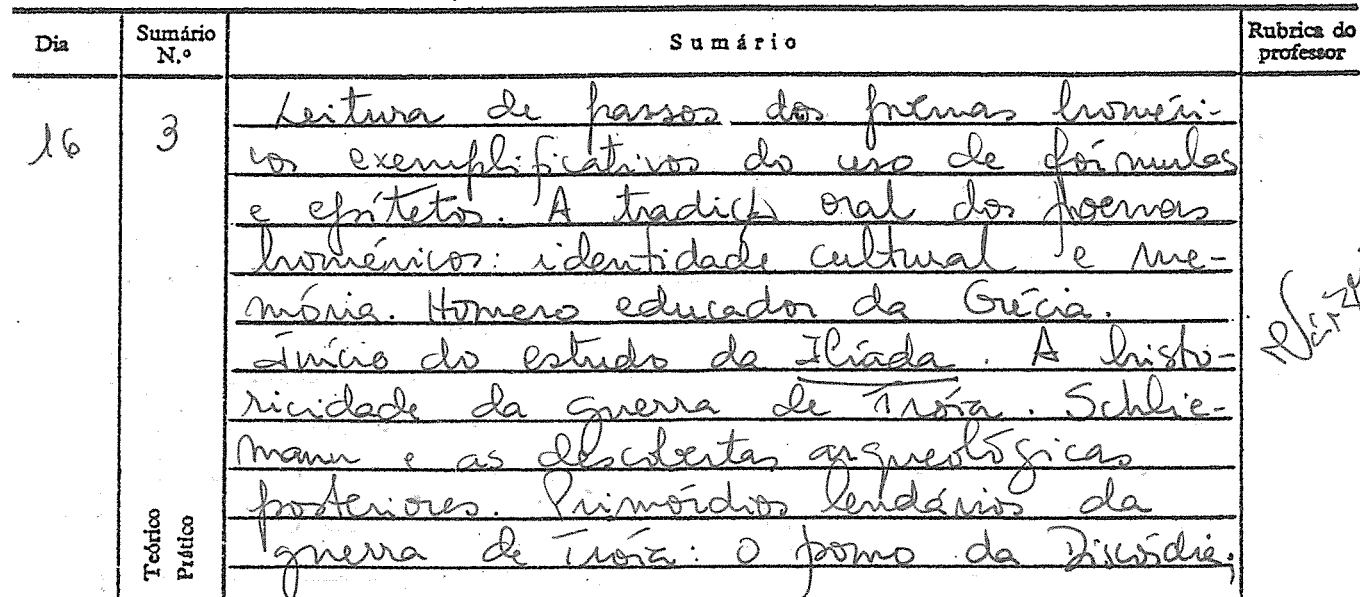 Dia Sumário N.º Sumário Rubrica do professor
16 3 Leitura de passos dos poemas homéri-
cos exemplificativos do uso de fórmulas
e epítetos. A tradição oral dos poemas
homéricos: identidade cultural e me-
mória. Homero educador da Grécia.
Início do estudo da Ilíada. A histo-
ricidade da guerra de Tróia. Schlie-
mann e as descobertas arqueológicas
posteriores. Primórdios lendários da
guerra de Tróia: o pomo da Discórdia;
Teórico
Prático